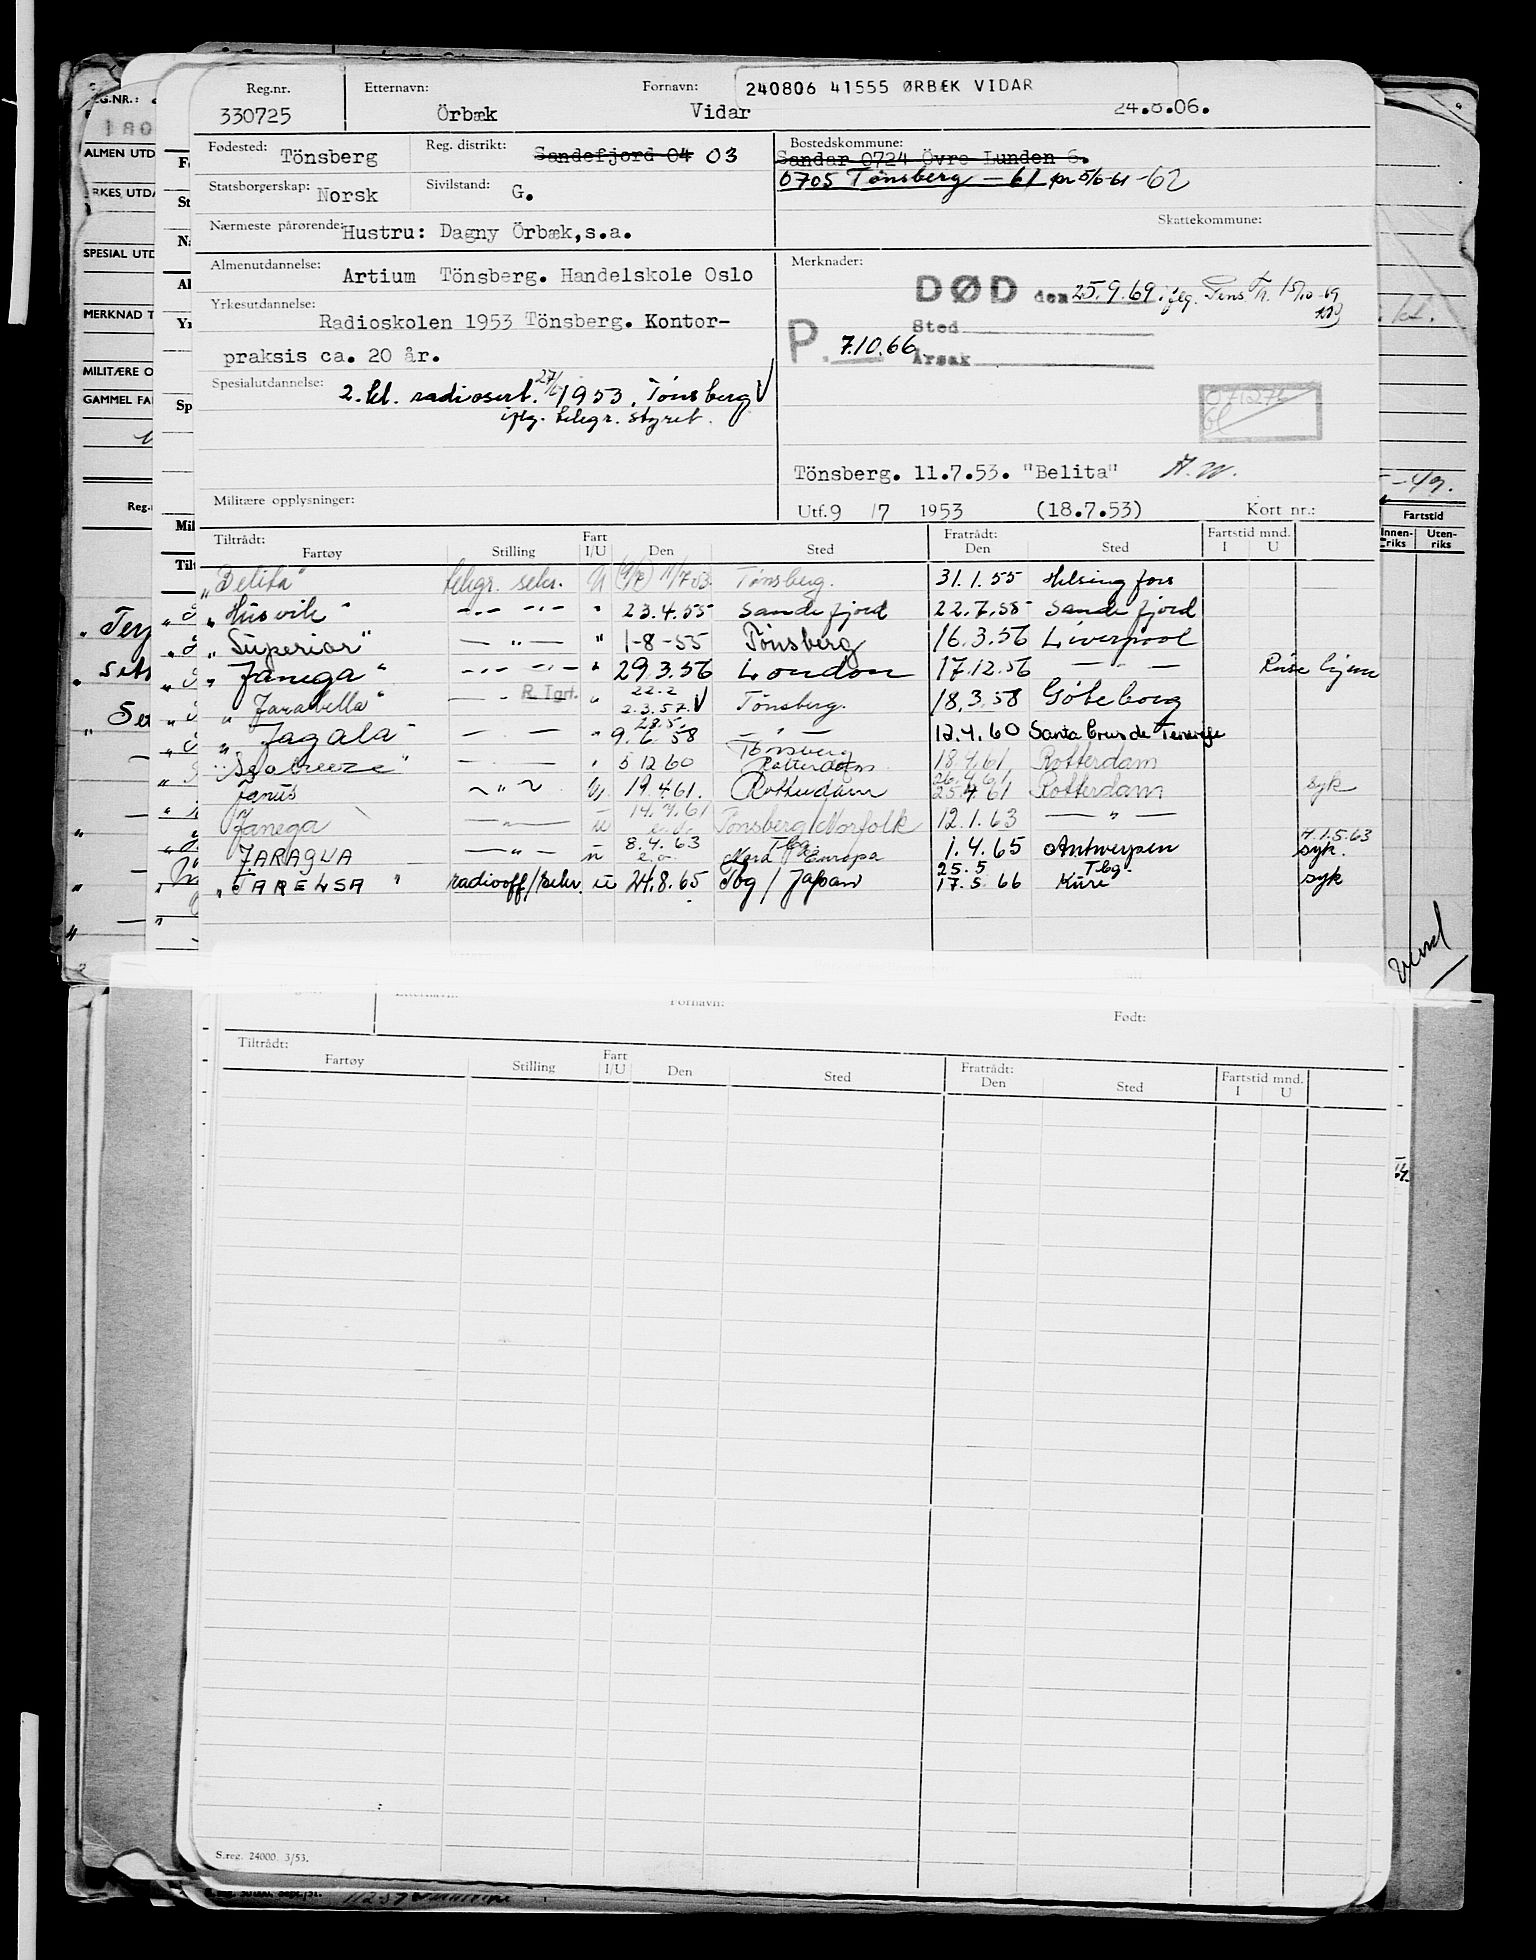 Reg.nr. Etternavn: Fornavn: 240806 41555 ØRBÆK VIDAR
330725 Örbæk Vidar 24.8.06.
Fødested: Tönsberg Reg. distrikt: Sandefjord 04 03 Bostedskommune:
Sandar 0724 Övre Lunden 6.
0705 Tønsberg - 61 pr 5/6-61 -62
Statsborgerskap: Norsk Sivilstand: G.
Skattekommune:
Nærmeste pårørende: Hustru: Dagny Örbæk,s.a.
Almenutdannelse: Artium Tönsberg. Handelskole Oslo Merknader:
DØD den 25.9.69 iflg. Pens Tr. 15/10-69
Yrkesutdannelse:
Radioskolen 1953 Tönsberg. Kontor-
praksis ca. 20 år.
Sted
P. 7.10.66 Årsak
Spesialutdannelse: 2. kl. radiosert. 1953. Tønsberg
iflg. telegr. styret.
Tönsberg. 11.7.53. "Belita"
Militære opplysninger:
Utf. 9 /7 1953 (18.7.53) Kort nr.:
Tiltrådt: Fart Fratrådt: Fartstid mnd.
Fartøy Stilling I/U Den Sted Den Sted I U
"Belita" telegr. sekr. U (9/7) 11/7 53 Tønsberg. 31.1.55 Helsingfors
"Husvik" -"- -"- " 23.4.55 Sandefjord 22.7.55 Sandefjord
"Superior" — " — " 1-8-55 Tønsberg 16.3.56 Liverpool
"Janega" -"- -"- " 29.3.56 London 17.12.56 — " —
"Jarabella" — " R.Tgrf. " 22.2 2.3.57. Tønsberg. 18.3.58 Göteborg
"Jagala" — — " 28.5. 9.6.58 — " — 12.4.60 Santa Cruz de Tenerife
"Seabreeze" — — " 5 12 60 Tønsberg Rotterdam 18.4.61 Rotterdam
Janus ~ " ~ U 19.4.61. Rotterdam 26.4.61 25.4.61 Rotterdam syk
Janega — " — U 14.7.61 Tønsberg/Norfolk 12.1.63 — " —
JARAGUA — " — U 8.4.63 Tbg. Nord Europa 1.4.65 Antwerpen syk.
"JARELSA" radiooff/sekr. U 24.8.65 Tbg / Japan 25.5 17.5.66 Tbg. Kure syk
Fornavn:
Født:
Tiltrådt: Fart Fratrådt: Fartstid mnd.
Fartøy Stilling I/U Den Sted Den Sted I U
S.reg. 24000. 3/53.